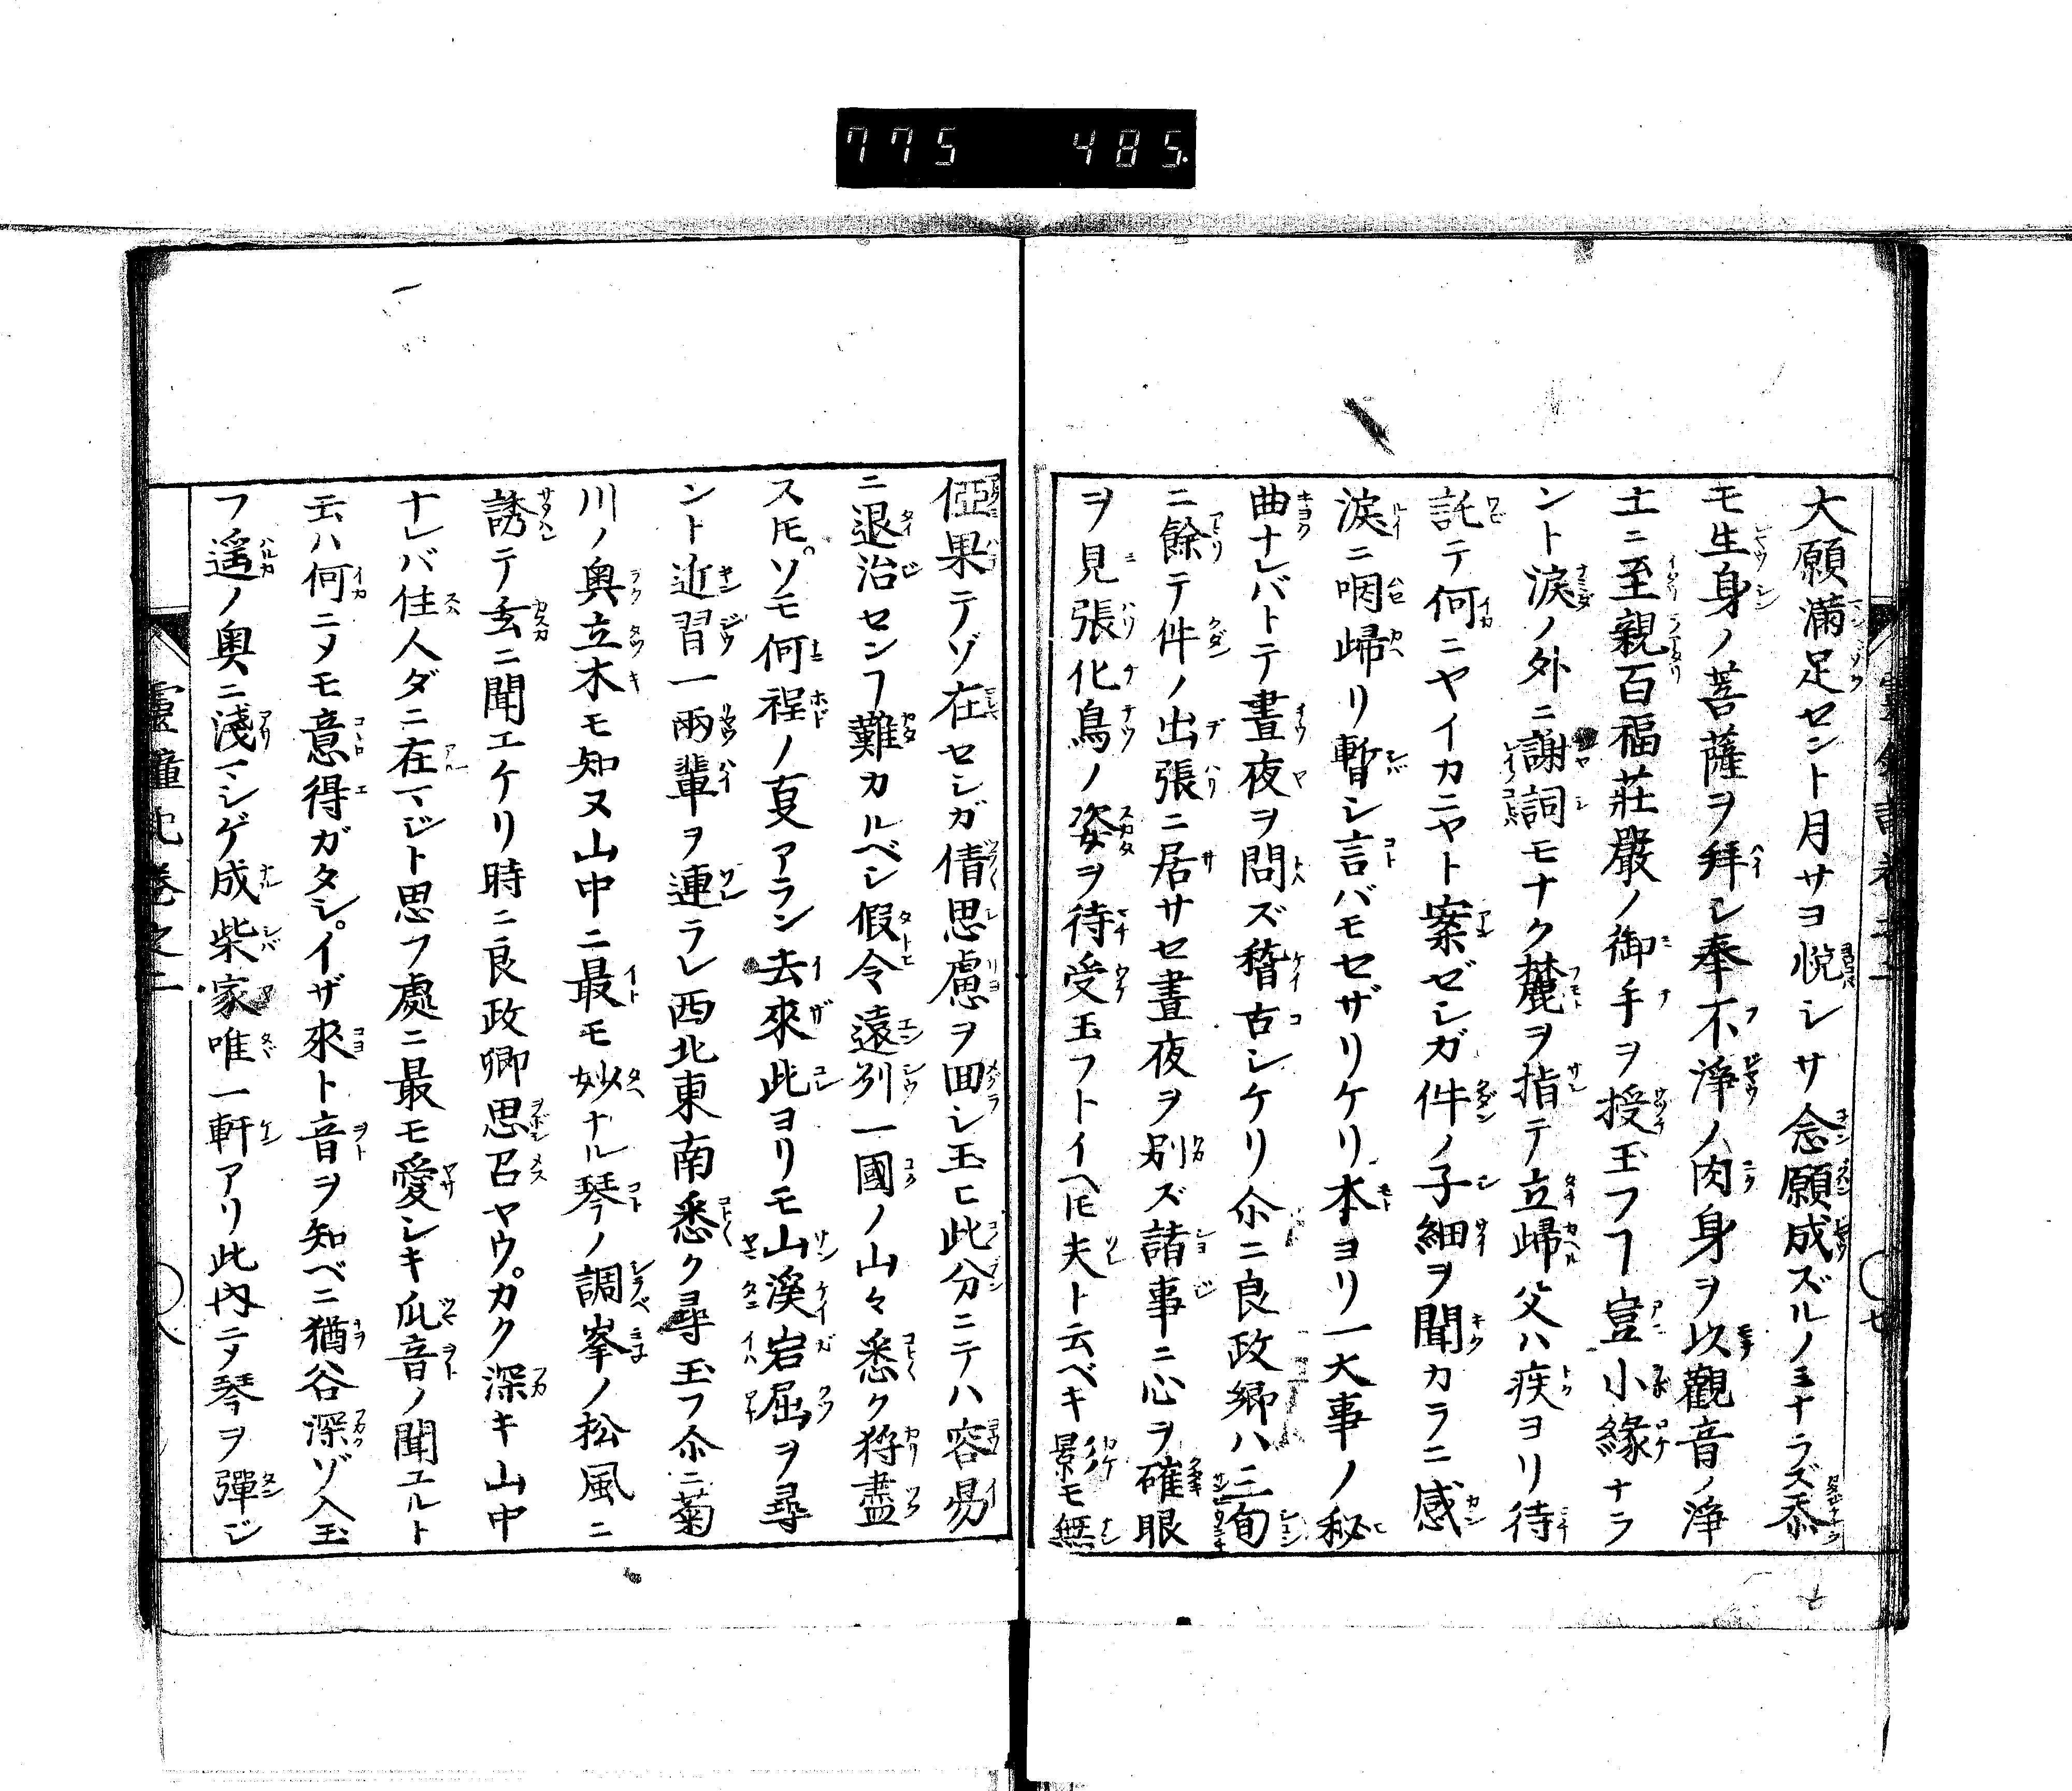 775 485
大願滿足セント月サヨ悦シサ念願成ズルノミナラズ忝
モ生身ノ菩薩ヲ拜シ奉不淨ノ肉身ヲ以觀音ノ淨
土ニ至親百福莊嚴ノ御手ヲ授玉フヿ豈小緣ナラ
ント淚ノ外ニ謝詞モナク麓ヲ指テ立歸父ハ疾ヨリ待
託テ何ニヤイカニヤト案ゼシガ件ノ子細ヲ聞カラニ感
淚ニ咽歸リ暫シ言バモセザリケリ本ヨリ一大事ノ秘
曲ナレバトテ晝夜ヲ問ズ稽古シケリ尒ニ良政鄉ハ三旬
ニ餘テ件ノ出張ニ居サセ晝夜ヲ別ズ諸事ニ心ヲ確眼
ヲ見張化鳥ノ姿ヲ待受玉フトイヘ𪜈夫ト云ベキ景モ無
俹果テゾ在セシガ倩思慮ヲ回シ玉ヒ此分ニテハ容易
ニ退治センヿ難カルベシ假令遠別一國ノ山々悉ク狩盡
ス𪜈ソモ何程ノ叓アラン去來此ヨリモ山溪岩屈ヲ尋
ント近習一兩輩ヲ連ラレ西北東南悉ク尋玉フ尒ニ菊
川ノ奧立木モ知ヌ山中ニ最モ妙ナル琴ノ調峯ノ松風ニ
誘テ玄ニ聞エケリ時ニ良政卿思召ヤウカク深キ山中
ナレバ住人ダニ在マジト思フ處ニ最モ愛シキ爪音ノ聞エルト
云ハ何ニメモ意得ガタシイザ來ト音ヲ知ベニ猶谷深ゾ入玉
フ遥ノ奧ニ淺マシゲ成柴家唯一軒アリ此内ニメ琴ヲ彈ジ
靈驗記卷之二
八